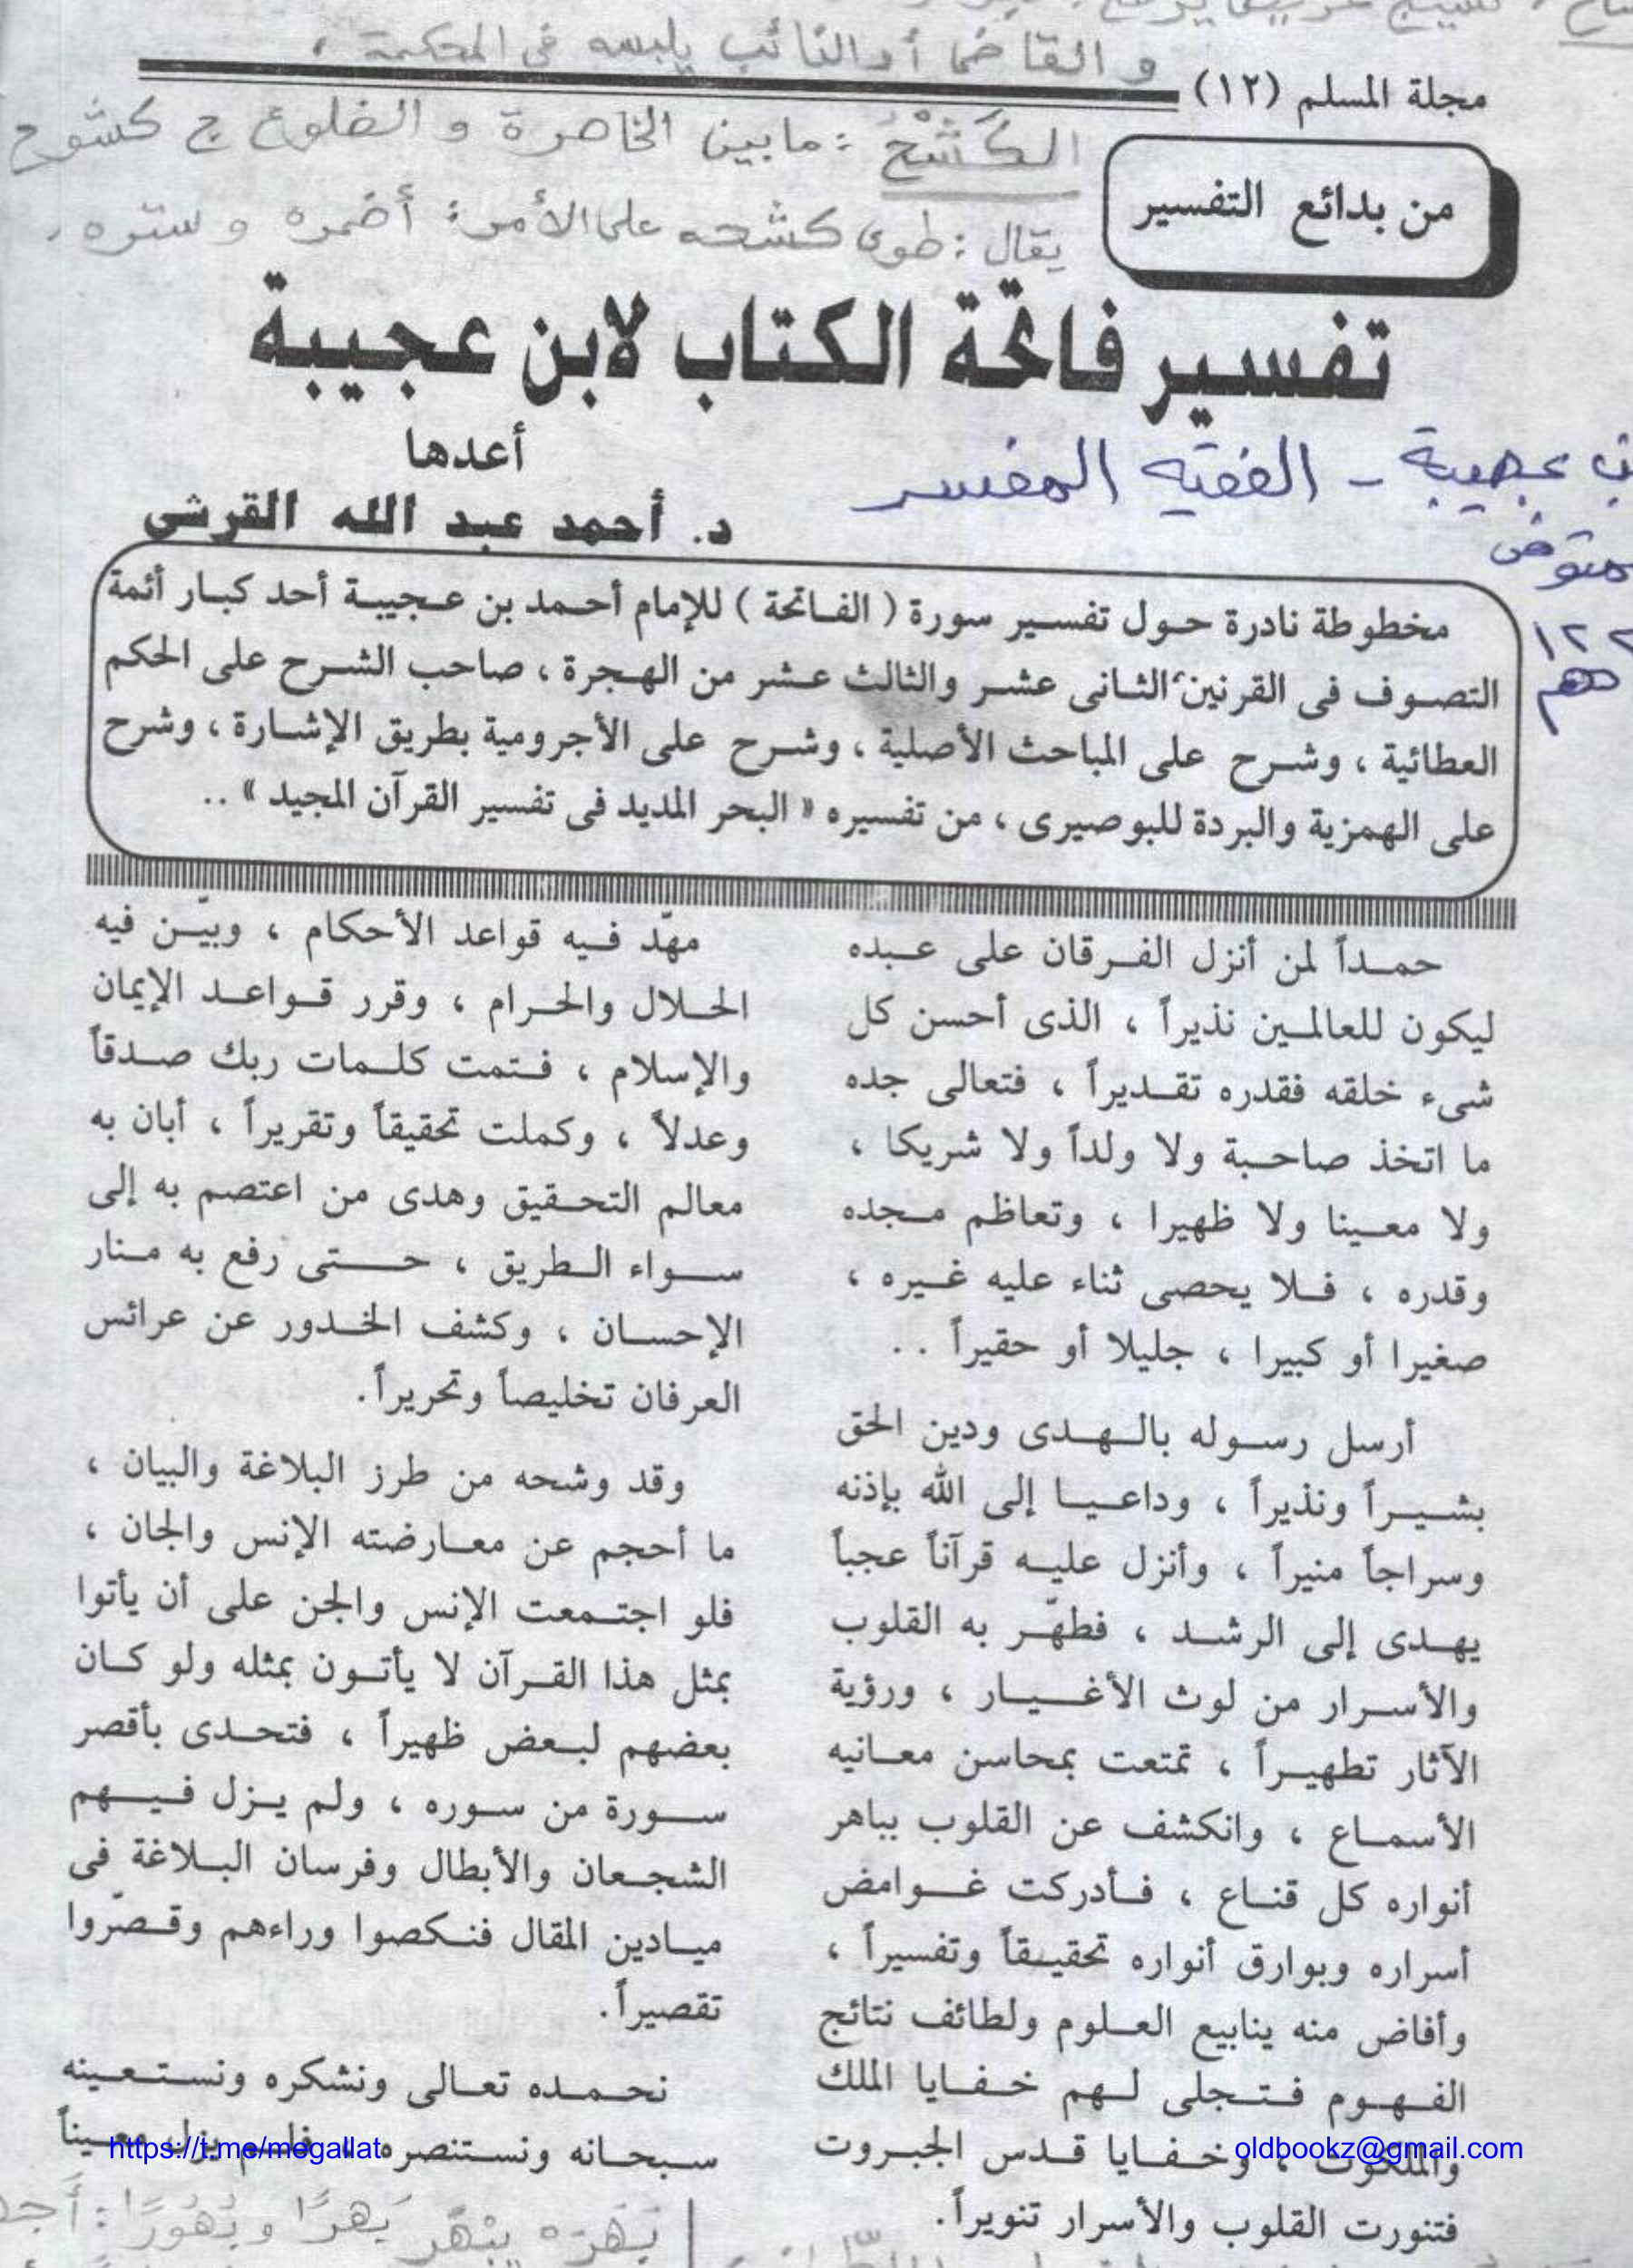 و القاضى أو النائب يلبسه فى المحكمة ،
مجلة المسلم (١٢)
الكَشْحُ : ما بين الخاصرة و الضلوع ج كشوح
يقال : طوى كشحه على الأمر : أضمره و ستره .
من بدائع التفسير
تفسير فاتحة الكتاب لابن عجيبة
عجيبة - الفقيه المفسر
أعدها
د. أحمد عبد الله القرشى
مخطوطة نادرة حول تفسير سورة ( الفاتحة ) للإمام أحمد بن عجيبة أحد كبار أئمة
التصوف فى القرنين الثانى عشر والثالث عشر من الهجرة ، صاحب الشرح على الحكم
العطائية ، وشرح على المباحث الأصلية ، وشرح على الأجرومية بطريق الإشارة ، وشرح
على الهمزية والبردة للبوصيرى ، من تفسيره « البحر المديد فى تفسير القرآن المجيد » ..
حمداً لمن أنزل الفرقان على عبده
ليكون للعالمين نذيراً ، الذى أحسن كل
شىء خلقه فقدره تقديراً ، فتعالى جده
ما اتخذ صاحبة ولا ولداً ولا شريكا ،
ولا معينا ولا ظهيرا ، وتعاظم مجده
وقدره ، فلا يحصى ثناء عليه غيره ،
صغيرا أو كبيرا ، جليلا أو حقيراً . .
أرسل رسوله بالهدى ودين الحق
بشيراً ونذيراً ، وداعيا إلى الله بإذنه
وسراجاً منيراً ، وأنزل عليه قرآناً عجباً
يهدى إلى الرشد ، فطهّر به القلوب
والأسرار من لوث الأغيار ، ورؤية
الآثار تطهيراً ، تمتعت بمحاسن معانيه
الأسماع ، وانكشف عن القلوب بباهر
أنواره كل قناع ، فأدركت غوامض
أسراره وبوارق أنواره تحقيقاً وتفسيراً ،
وأفاض منه ينابيع العلوم ولطائف نتائج
الفهوم فتجلى لهم خفايا الملك
والملكوت ، وخفايا قدس الجبروت
فتنورت القلوب والأسرار تنويراً.
مهّد فيه قواعد الأحكام ، وبيّن فيه
الحلال والحرام ، وقرر قواعد الإيمان
والإسلام ، فتمت كلمات ربك صدقاً
وعدلاً ، وكملت تحقيقاً وتقريراً ، أبان به
معالم التحقيق وهدى من اعتصم به إلى
سواء الطريق ، حتى رفع به منار
الإحسان ، وكشف الخدور عن عرائس
العرفان تخليصاً وتحريراً.
وقد وشحه من طرز البلاغة والبيان ،
ما أحجم عن معارضته الإنس والجان ،
فلو اجتمعت الإنس والجن على أن يأتوا
بمثل هذا القرآن لا يأتون بمثله ولو كان
بعضهم لبعض ظهيراً ، فتحدى بأقصر
سورة من سوره ، ولم يزل فيهم
الشجعان والأبطال وفرسان البلاغة فى
ميادين المقال فنكصوا وراءهم وقصّروا
تقصيراً.
نحمده تعالى ونشكره ونستعينه
سبحانه ونستنصره ، فلم يزل معيناً
https://t.me/megallat
oldbookz@gmail.com